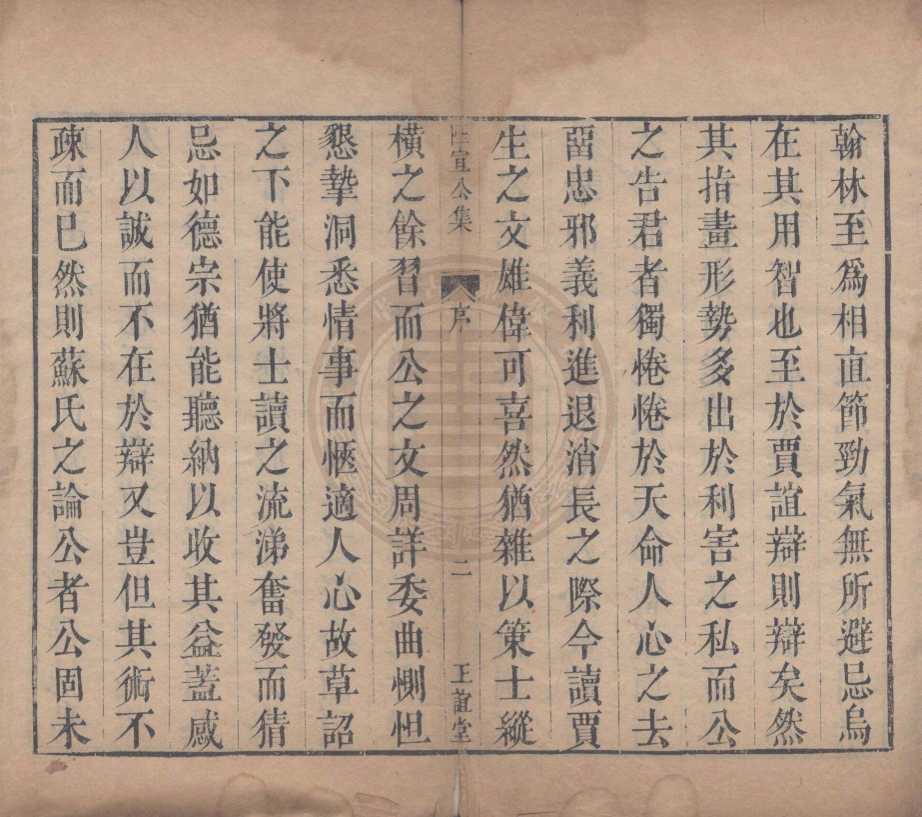 翰林至爲相直節勁氣無所避忌烏
在其用智也至於賈誼辯則辯矣然
其指畫形勢多出於利害之私而公
之告君者獨惓惓於天命人心之去
留忠邪義利進退消長之際今讀賈
生之文雄偉可喜然猶雜以策士縱
陸宣公集 序 二 正誼堂
橫之餘習而公之文周詳委曲惻怛
懇摯洞悉情事而愜適人心故草詔
之下能使將士讀之流涕奮發而猜
忌如德宗猶能聽納以收其益蓋感
人以誠而不在於辯又豈但其術不
疎而已然則蘇氏之論公者公固未